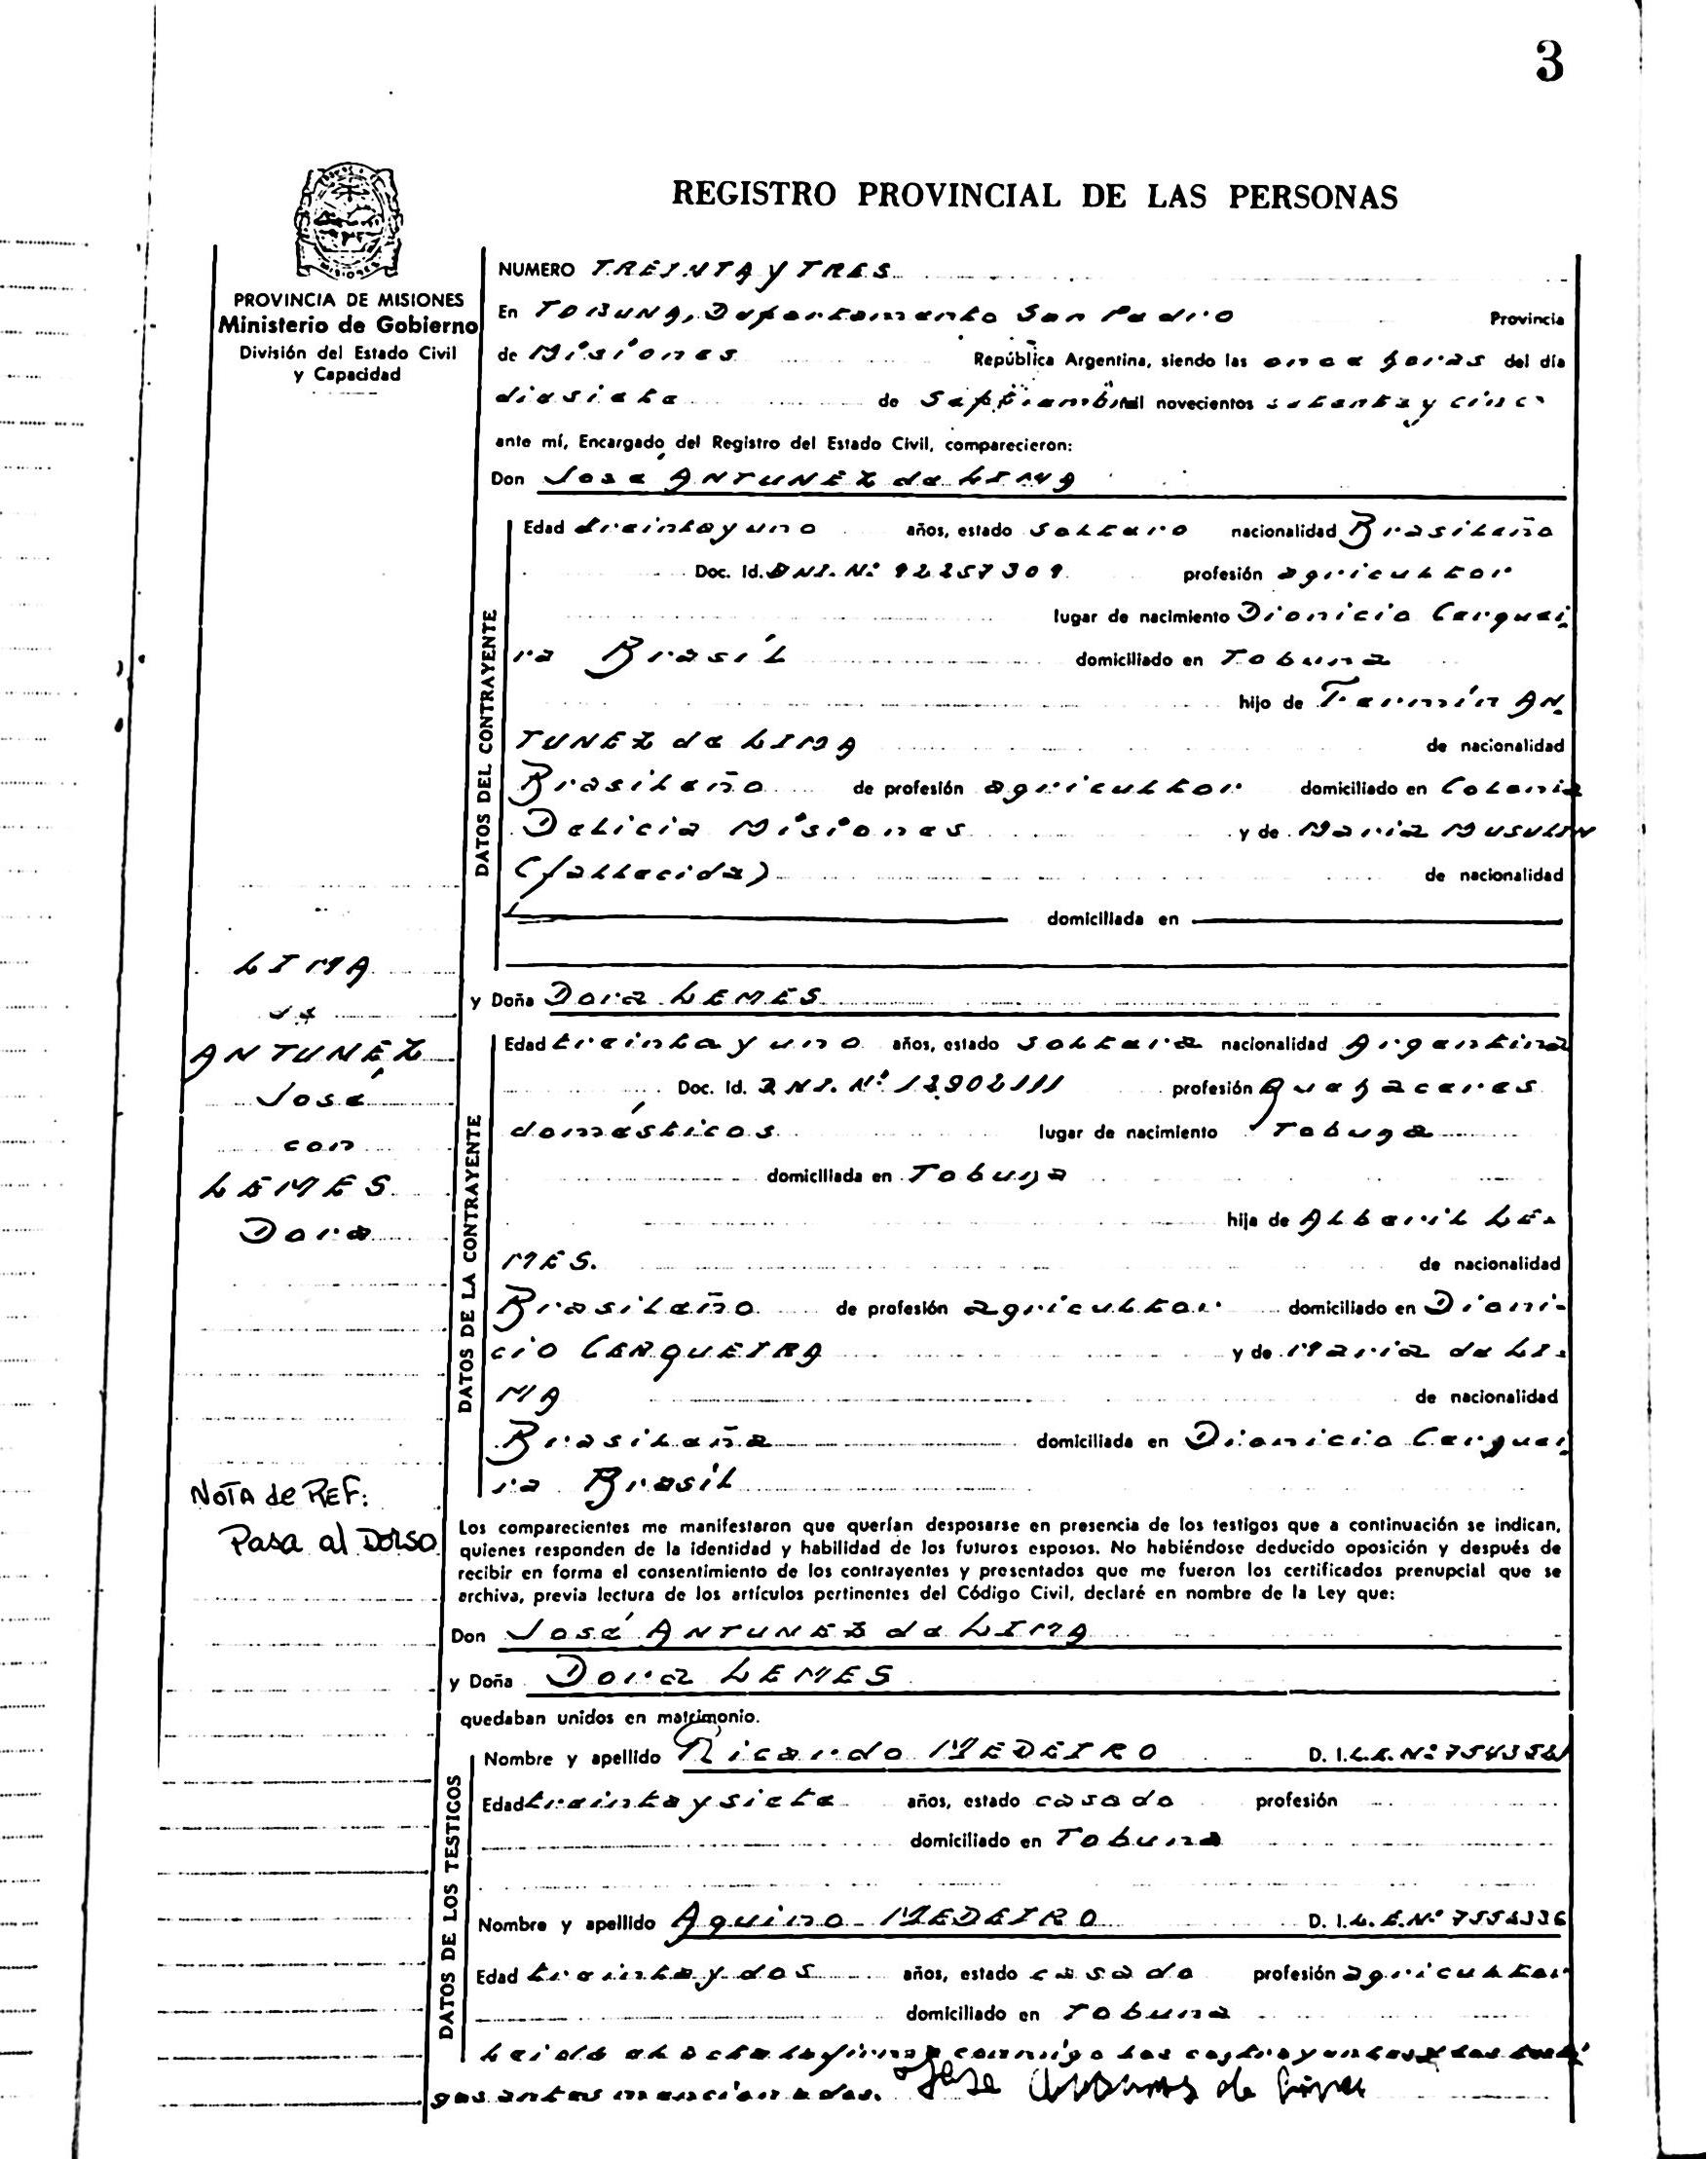 3
REGISTRO PROVINCIAL DE LAS PERSONAS
MISIONES
PROVINCIA DE MISIONES
Ministerio de Gobierno
División del Estado Civil
y Capacidad
NUMERO TREINTA y TRES
En TOBUNA, Departamento San Pedro Provincia
de Misiones República Argentina, siendo las once horas del día
diesiete de Septiembre mil novecientos setenta y cinco
ante mí, Encargado del Registro del Estado Civil, comparecieron:
Don José ANTUNEZ de LIMA
DATOS DEL CONTRAYENTE
Edad treinta y uno años, estado soltero nacionalidad Brasileño
Doc. Id. DNI. Nº 92257309 profesión agricultor
lugar de nacimiento Dionicio Cerquei
ra Brasil domiciliado en Tobuna
hijo de Fermín AN
TUNEZ de LIMA de nacionalidad
Brasileño de profesión agricultor domiciliado en Colonia
Delicia Misiones y de María MUSULIN
(fallecida) de nacionalidad
domiciliada en
y Doña Dora LEMES
LIMA
de
ANTUNEZ
José
con
LEMES
Dora
DATOS DE LA CONTRAYENTE
Edad treinta y uno años, estado soltera nacionalidad Argentina
Doc. Id. DNI. Nº 12902111 profesión Quehaceres
domésticos lugar de nacimiento Tobuna
domiciliada en Tobuna
hija de Alberil LE-
MES. de nacionalidad
Brasileño de profesión agricultor domiciliado en Dioni-
cio CERQUEIRA y de María de LI-
MA de nacionalidad
Brasileña domiciliada en Dionicio Cerquei
ra Brasil
NOTA de REF:
Pasa al Dorso
Los comparecientes me manifestaron que querían desposarse en presencia de los testigos que a continuación se indican,
quienes responden de la identidad y habilidad de los futuros esposos. No habiéndose deducido oposición y después de
recibir en forma el consentimiento de los contrayentes y presentados que me fueron los certificados prenupcial que se
archiva, previa lectura de los artículos pertinentes del Código Civil, declaré en nombre de la Ley que:
Don José ANTUNEZ de LIMA
y Doña Dora LEMES
quedaban unidos en matrimonio.
DATOS DE LOS TESTIGOS
Nombre y apellido Ricardo MEDEIRO D. I. L.E. Nº
Edad treinta y siete años, estado casado profesión
domiciliado en Tobuna
Nombre y apellido Aquino MEDEIRO D. I. L.E. Nº
Edad treinta y dos años, estado casado profesión agricultor
domiciliado en Tobuna
Leido el acta la firman conmigo los contrayentes y los testi
gos antes mencionados. Jose de